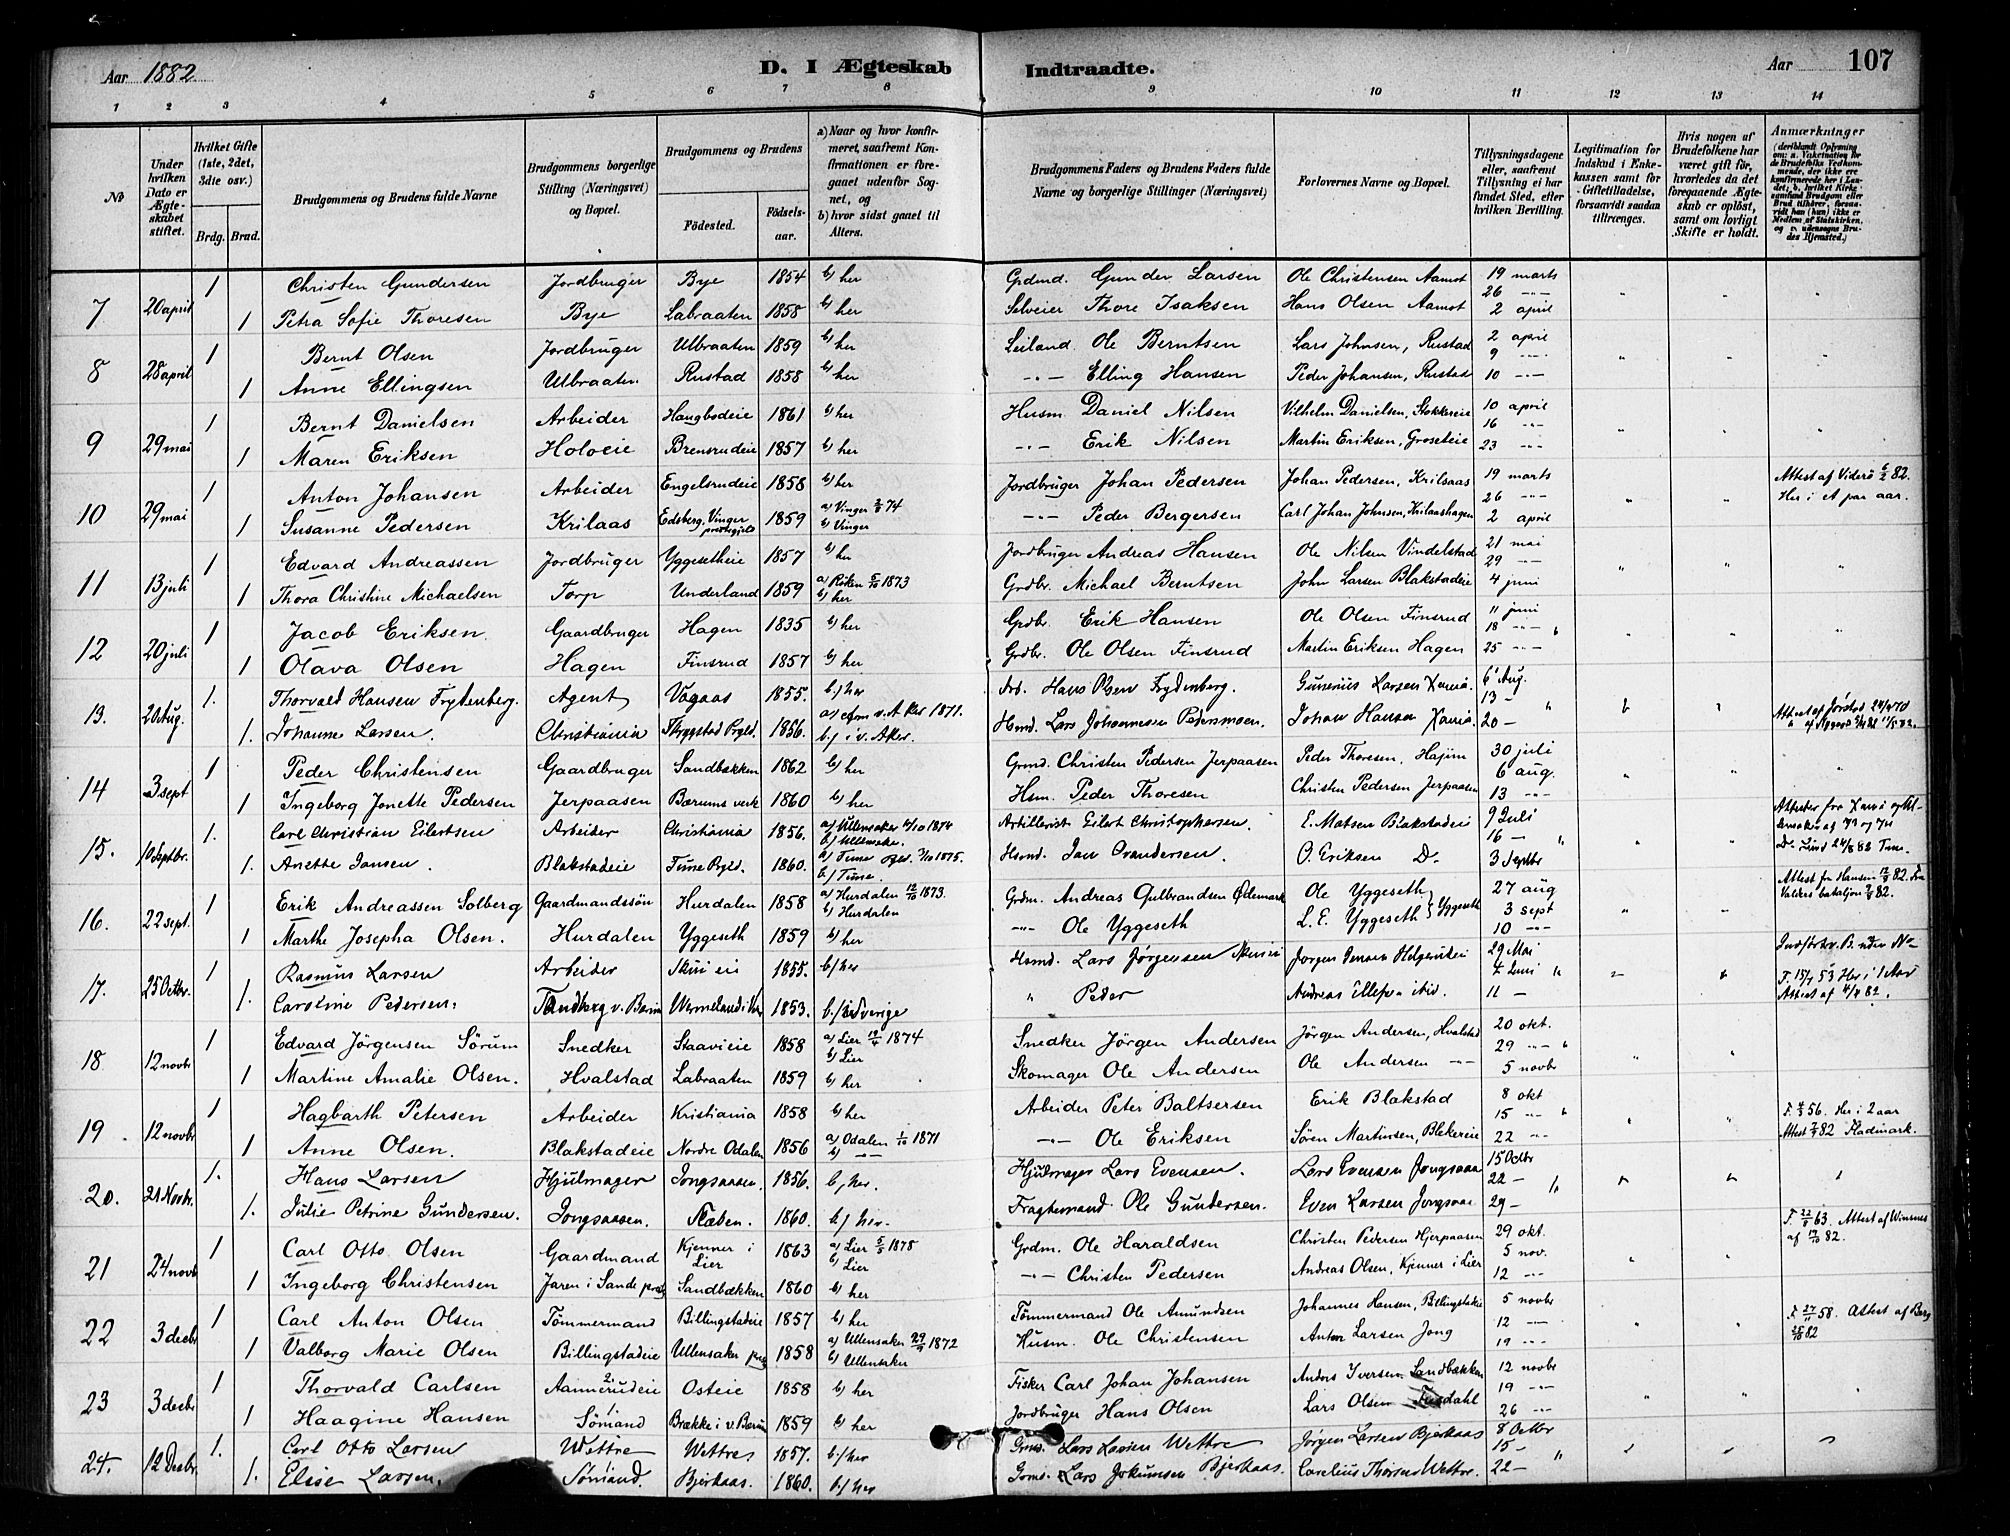 Aar 1882
D. I Ægteskab Indtraadte.
Aar 107
1 2 3 4 5 6 7 8 9 10 11 12 13 14
No
Under hvilken Dato er Ægteskabet stiftet.
Hvilket Gifte (1ste, 2det, 3die osv.)
Brdg. Brud.
Brudgommens og Brudens fulde Navne
Brudgommens borgerlige Stilling (Næringsvei) og Bopæl.
Brudgommens og Brudens
Fødested.
Fødselsaar.
a) Naar og hvor konfirmeret, saafremt Konfirmationen er foregaaet udenfor Sognet, og
b) hvor sidst gaaet til Alters.
Brudgommens Faders og Brudens Faders fulde Navne og borgerlige Stillinger (Næringsvei)
Forlovernes Navne og Bopæl.
Tillysningsdagene eller, saafremt Tillysning ei har fundet Sted, efter hvilken Bevilling.
Legitimation for Indskud i Enkekassen samt for Giftetilladelse, forsaavidt saadan tiltrænges.
Hvis nogen af Brudefolkene har været gift før, hvorledes da det foregaaende Ægteskab er opløst, samt om lovligt Skifte er holdt.
Anmærkninger
7 20 april 1 Christen Gundersen Jordbruger Bye 1854 b) her Grdmd. Gunder Larsen Ole Christensen Aamot 19 marts
26 -"-
1 Petra Sofie Thoresen Bye Labraaten 1858 b) her Selveier Thore Isaksen Hans Olsen Aamot 2 april
8 28 april 1 Bernt Olsen Jordbruger Ulbraaten 1859 b) her Leiland. Ole Berntsen Lars Johnsen, Rustad 2 april
9 -"-
1 Anne Ellingsen Ulbraaten Rustad 1858 b) her -"- Elling Hansen Peder Johansen, Rustad 10 -"-
9 29 mai 1 Bernt Danielsen Arbeider Haugbodeie 1861 b) her Husm. Daniel Nilsen Vilhelm Danielsen, Stokkereie 10 april
16 -"-
1 Maren Eriksen Holoeie Brensrudeie 1857 b) her -"- Erik Nilsen Martin Eriksen, Groseteie 23 -"-
10 29 mai 1 Anton Johansen Arbeider Engelsrudeie 1858 b) her Jordbruger Johan Pedersen Johan Pedersen, Krilaas 19 marts Attest af Viderø 6/2 82.
26 -"- Her i et par aar.
1 Susanne Pedersen Krilaas Edsberg, Vinger 1859 a) Vinger 74 b) Vinger -"- Peder Bergersen Carl Johan Johnsen, Krilaashagen 2 april
11 13 juli 1 Edvard Andreassen Jordbruger Yggesetheie 1857 b) her Jordbruger Andreas Hansen Ole Nilsen Vindelstad 21 mai
29 -"-
1 Thora Christine Michaelsen Torp Underland 1859 a) Røken 5/10 1873 b) her Grdbr. Michael Berntsen John Larsen Blakstadeie 4 juni
12 20 juli 1 Jacob Eriksen Gaardbruger Hagen 1835 b) her Grdbr. Erik Hansen Ole Olsen Finsrud 11 juni
18 -"-
1 Olava Olsen Hagen Finsrud 1857 b) her Grdbr. Ole Olsen Finsrud Martin Eriksen Hagen 25 -"-
13. 20 Aug. 1. Thorvald Hansen Frydenberg. Agent Vogaas 1855. b./ her Arb. Hans Olsen Frydenberg. Gunerius Larsen Xania. 6 Aug.
13 -
1. Johanne Larsen. Christiania Trygstad Prgld. 1856. a) i v. Aker 1871. b./ i v. Aker. Hsmd. Lars Johannesen Pedersmoen. Johan Hansen Xania. 20 - Attest af Jørstad 24/4 70
14 3 sept 1 Peder Christensen Gaardbruger Sandbækken 1862 b) her Grmd. Christen Pedersen Jerpaasen Peder Thoresen, Hajim 30 juli
6 aug.
1 Ingeborg Jonette Pedersen Jerpaasen Bærums verk 1860 b) her Hsm. Peder Thoresen Christen Pedersen Jerpaasen 13 -"-
15. 10 Septbr. 1. Carl Christian Eilertsen Arbeider Christiania 1856. a) Ullensaker 4/10 1874 b) Ullensaker. Artillerist Eilert Christophersen. E. Matsen Blakstadeie 9 Juli
16 -
1. Anette Jansen. Blakstadeie Tune Prgld. 1860. a) Tune 1875. b./ Tune. Hsmd. Jan Svandersen. O. Eriksen Do. 3 Septbr
16. 22 sept. 1 Erik Andreassen Solberg Gaardmandssøn Hurdalen 1858 a) Hurdalen 12/10 1873. b) Hurdalen Grdm. Andreas Gulbrandsen Ødemark Ole Yggeseth 27 aug
L. E. Yggeseth } Yggeseth 3 sept
1 Marthe Josepha Olsen. Hurdalen Yggeseth 1859 b) her -"- Ole Yggeseth 10 -"-
17. 25 Octbr. 1 Rasmus Larsen Arbeider Skuieie 1855. b./ her Hsmd. Lars Jørgensen Skuieie Jørgen Jensen Helgerudeie 29 Mai
4 Juni
1. Caroline Pedersen: Tandberg v. Bærum Wermeland 1853. b./ i Sverige " Peder Andreas 11 -
18 12 novbr 1 Edvard Jörgensen Sörum Snedker Staavieie 1858 a) Lier 1874 b) Lier Snedker Jörgen Andersen Jörgen Andersen, Hvalstad 20 okt.
29 -"-
1 Martine Amalie Olsen. Hvalstad Labraaten 1859 b) her Skomager Ole Andersen Ole Andersen -"- 5 novbr
19. 12 novbr 1 Hagbarth Petersen Arbeider Kristiania 1858 b) her Arbeider Peter Baltsersen Erik Blakstad 8 okt
15 -"- 56. Her i 2 aar
1 Anne Olsen. Blakstadeie Nordre Odalen 1856 a) Odalen 1/10 1871 b) -"- -"- Ole Eriksen Sören Martinsen, Blekereie 22 -"- Attest 82 Fladmark.
20. 21 Novbr. 1. Hans Larsen Hjulmager Jongsaasen. 1856. b./ her. Hjulmager Lars Evensen. Lars Evensen Jongsaas 15 Octbr
22 -
1. Julie Petrine Gundersen. Jongsaasen. Slæben. 1860. b./ her. Fragtemand Ole Gundersen. Even Larsen Jongsaas 29 -
21 24 novb 1 Carl Otto Olsen Gaardmand Kjenner i Lier 1863 a) Lier 5/5 1878 b) Lier Grdm. Ole Haraldsen Christen Pedersen Hjerpaasen 29 okt. F. 63. Attest af Winsnes
5 nov. af 82.
1 Ingeborg Christensen Jaren i Sande Sandbækken 1860 b) her -"- Christen Pedersen Andreas Olsen, Kjenner i Lier 12 -"-
22 3 decbr 1 Carl Anton Olsen Tömmermand Billingstadeie 1857 b) her Tömmermand Ole Amundsen Johannes Hansen, Billingstadeie 5 novbr F. 27/11 58. Attest af Berg
12 -"- 82
1 Valborg Marie Olsen Billingstadeie Ullensaker 1858 a) Ullensaker 29/9 1872 b) Ullensaker Husm. Ole Christensen Anton Larsen Jong 19 -"-
23 3 decbr 1 Thorvald Carlsen Aannerudeie Osteie 1858 b) her Fisker Carl Johan Johansen Anders Iversen Sandbækken 12 novbr
19 -"-
1 Haagine Hansen Sömand Brække i v. Bærum 1859 b) her Jordbruger Hans Olsen Lars Olsen 26 -"-
24. 12 Decbr. 1. Carl Otto Larsen Wettre Wettre 1857. b./ her Grmd. Lars Larsen Wettre Jørgen Larsen Bjerkaas 8 Octbr
15 -
1. Elise Larsen. Sømand. Bjerkaas. 1860. b./ her Grmd. Lars Jokumsen Bjerkaas. Carelius Thorsen Wettre. 22 -